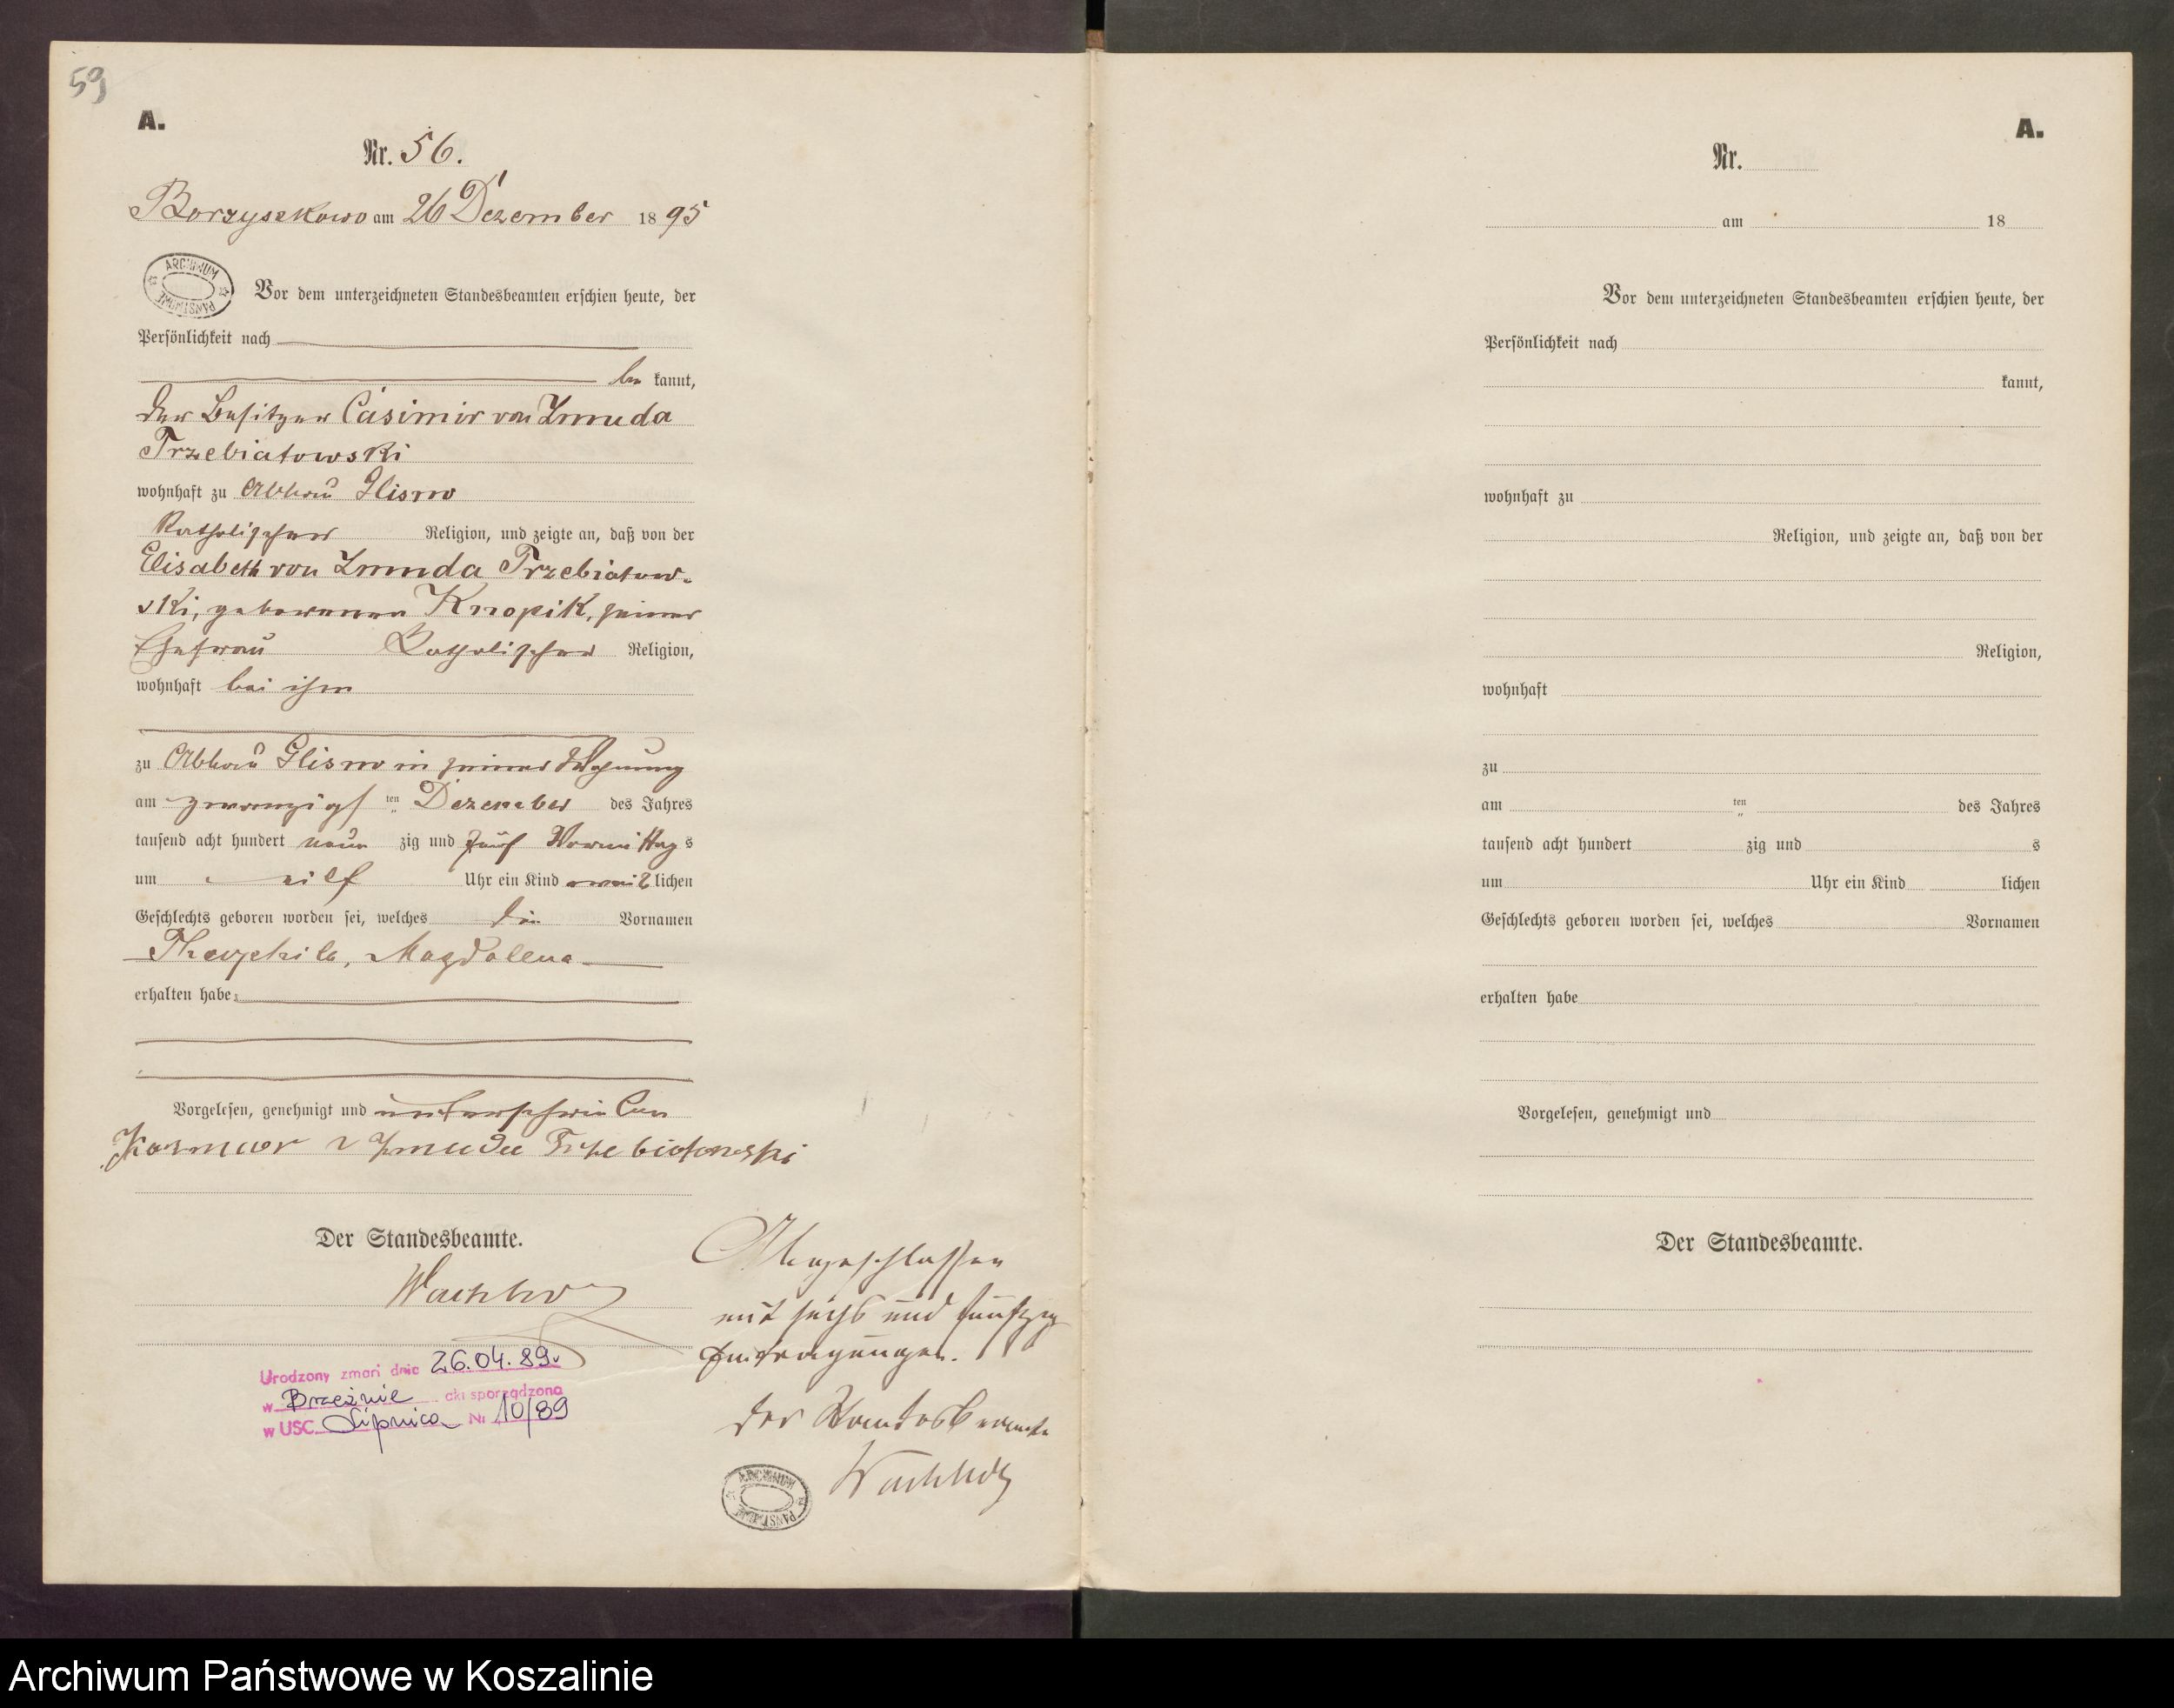 59
A.
Nr. 56.
Borzyszkowo am 26 Dezember 1895
ARCHIWUM PAŃSTWOWE
Vor dem unterzeichneten Standesbeamten erschien heute, der
Persönlichkeit nach
be kannt,
der Besitzer Casimir von Zmuda
Trzebiatowski
wohnhaft zu Abbau Glisno
katholischer Religion, und zeigte an, daß von der
Elisabeth von Zmuda Trzebiatow-
ski, geborenen Knopik, seiner
Ehefrau katholischer Religion,
wohnhaft bei ihm
zu Abbau Glisno in seiner Wohnung
am zwanzigs ten Dezember des Jahres
tausend acht hundert neun zig und fünf Vormittag s
um eilf Uhr ein Kind weib lichen
Geschlechts geboren worden sei, welches die Vornamen
Theophila, Magdalena
erhalten habe.
Vorgelesen, genehmigt und unterschrieben
v Zmuda Trzebiatowski
Der Standesbeamte.
Wachholz
Abgeschlossen
mit sechs und fünfzig
Eintragungen.
Der Standesbeamte
Wachholz
ARCHIWUM PAŃSTWOWE
Urodzony zmarł dnia 26.04.89.
w Brzeźnie akt sporządzono
w USC Lipnica Nr 10/89
A.
Nr.
am 18
Vor dem unterzeichneten Standesbeamten erschien heute, der
Persönlichkeit nach
kannt,
wohnhaft zu
Religion, und zeigte an, daß von der
Religion,
wohnhaft
zu
am ten des Jahres
tausend acht hundert zig und s
um Uhr ein Kind lichen
Geschlechts geboren worden sei, welches Vornamen
erhalten habe
Vorgelesen, genehmigt und
Der Standesbeamte.
Archiwum Państwowe w Koszalinie